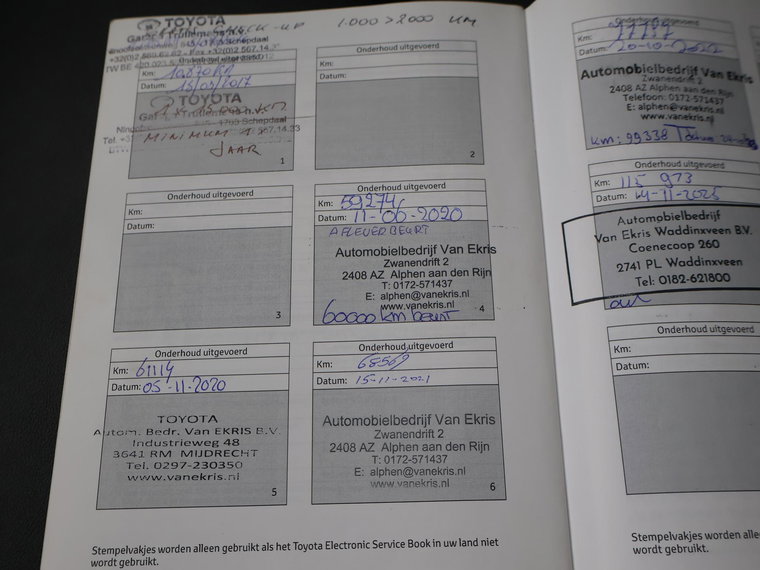 TOYOTA
CHECK-UP 1.000 > 2000 KM
Onderhoud uitgevoerd
Km: 10.870 KM
Datum: 15/03/2017
TOYOTA
1 X 15000 KM
MINIMUM 1X
JAAR
1
Onderhoud uitgevoerd
Km:
Datum:
2
Onderhoud uitgevoerd
Km:
Datum:
3
Onderhoud uitgevoerd
Km: 59274
Datum: 11-06-2020
AFLEVERBEURT
Automobielbedrijf Van Ekris
Zwanendrift 2
2408 AZ Alphen aan den Rijn
T: 0172-571437
E: alphen@vanekris.nl
www.vanekris.nl
60000 km beurt
4
Onderhoud uitgevoerd
Km: 61114
Datum: 05-11-2020
TOYOTA
Autom. Bedr. Van EKRIS B.V.
Industrieweg 48
3641 RM MIJDRECHT
Tel. 0297-230350
www.vanekris.nl
5
Onderhoud uitgevoerd
Km: 68569
Datum: 15-11-2021
Automobielbedrijf Van Ekris
Zwanendrift 2
2408 AZ Alphen aan den Rijn
T: 0172-571437
E: alphen@vanekris.nl
www.vanekris.nl
6
Stempelvakjes worden alleen gebruikt als het Toyota Electronic Service Book in uw land niet
wordt gebruikt.
Onderhoud uitgevoerd
Km:
Datum: 20-10-2022
Automobielbedrijf Van Ekris
Zwanendrift 2
2408 AZ Alphen aan den Rijn
Telefoon: 0172-571437
E: alphen@vanekris.nl
www.vanekris.nl
km: 99338
Onderhoud uitgevoerd
Km: 115 973
Datum: 14-11-2025
Automobielbedrijf
Van Ekris Waddinxveen B.V.
Coenecoop 260
2741 PL Waddinxveen
Tel: 0182-621800
Onderhoud uitgevoerd
Km:
Datum:
Stempelvakjes worden alle
wordt gebruikt.